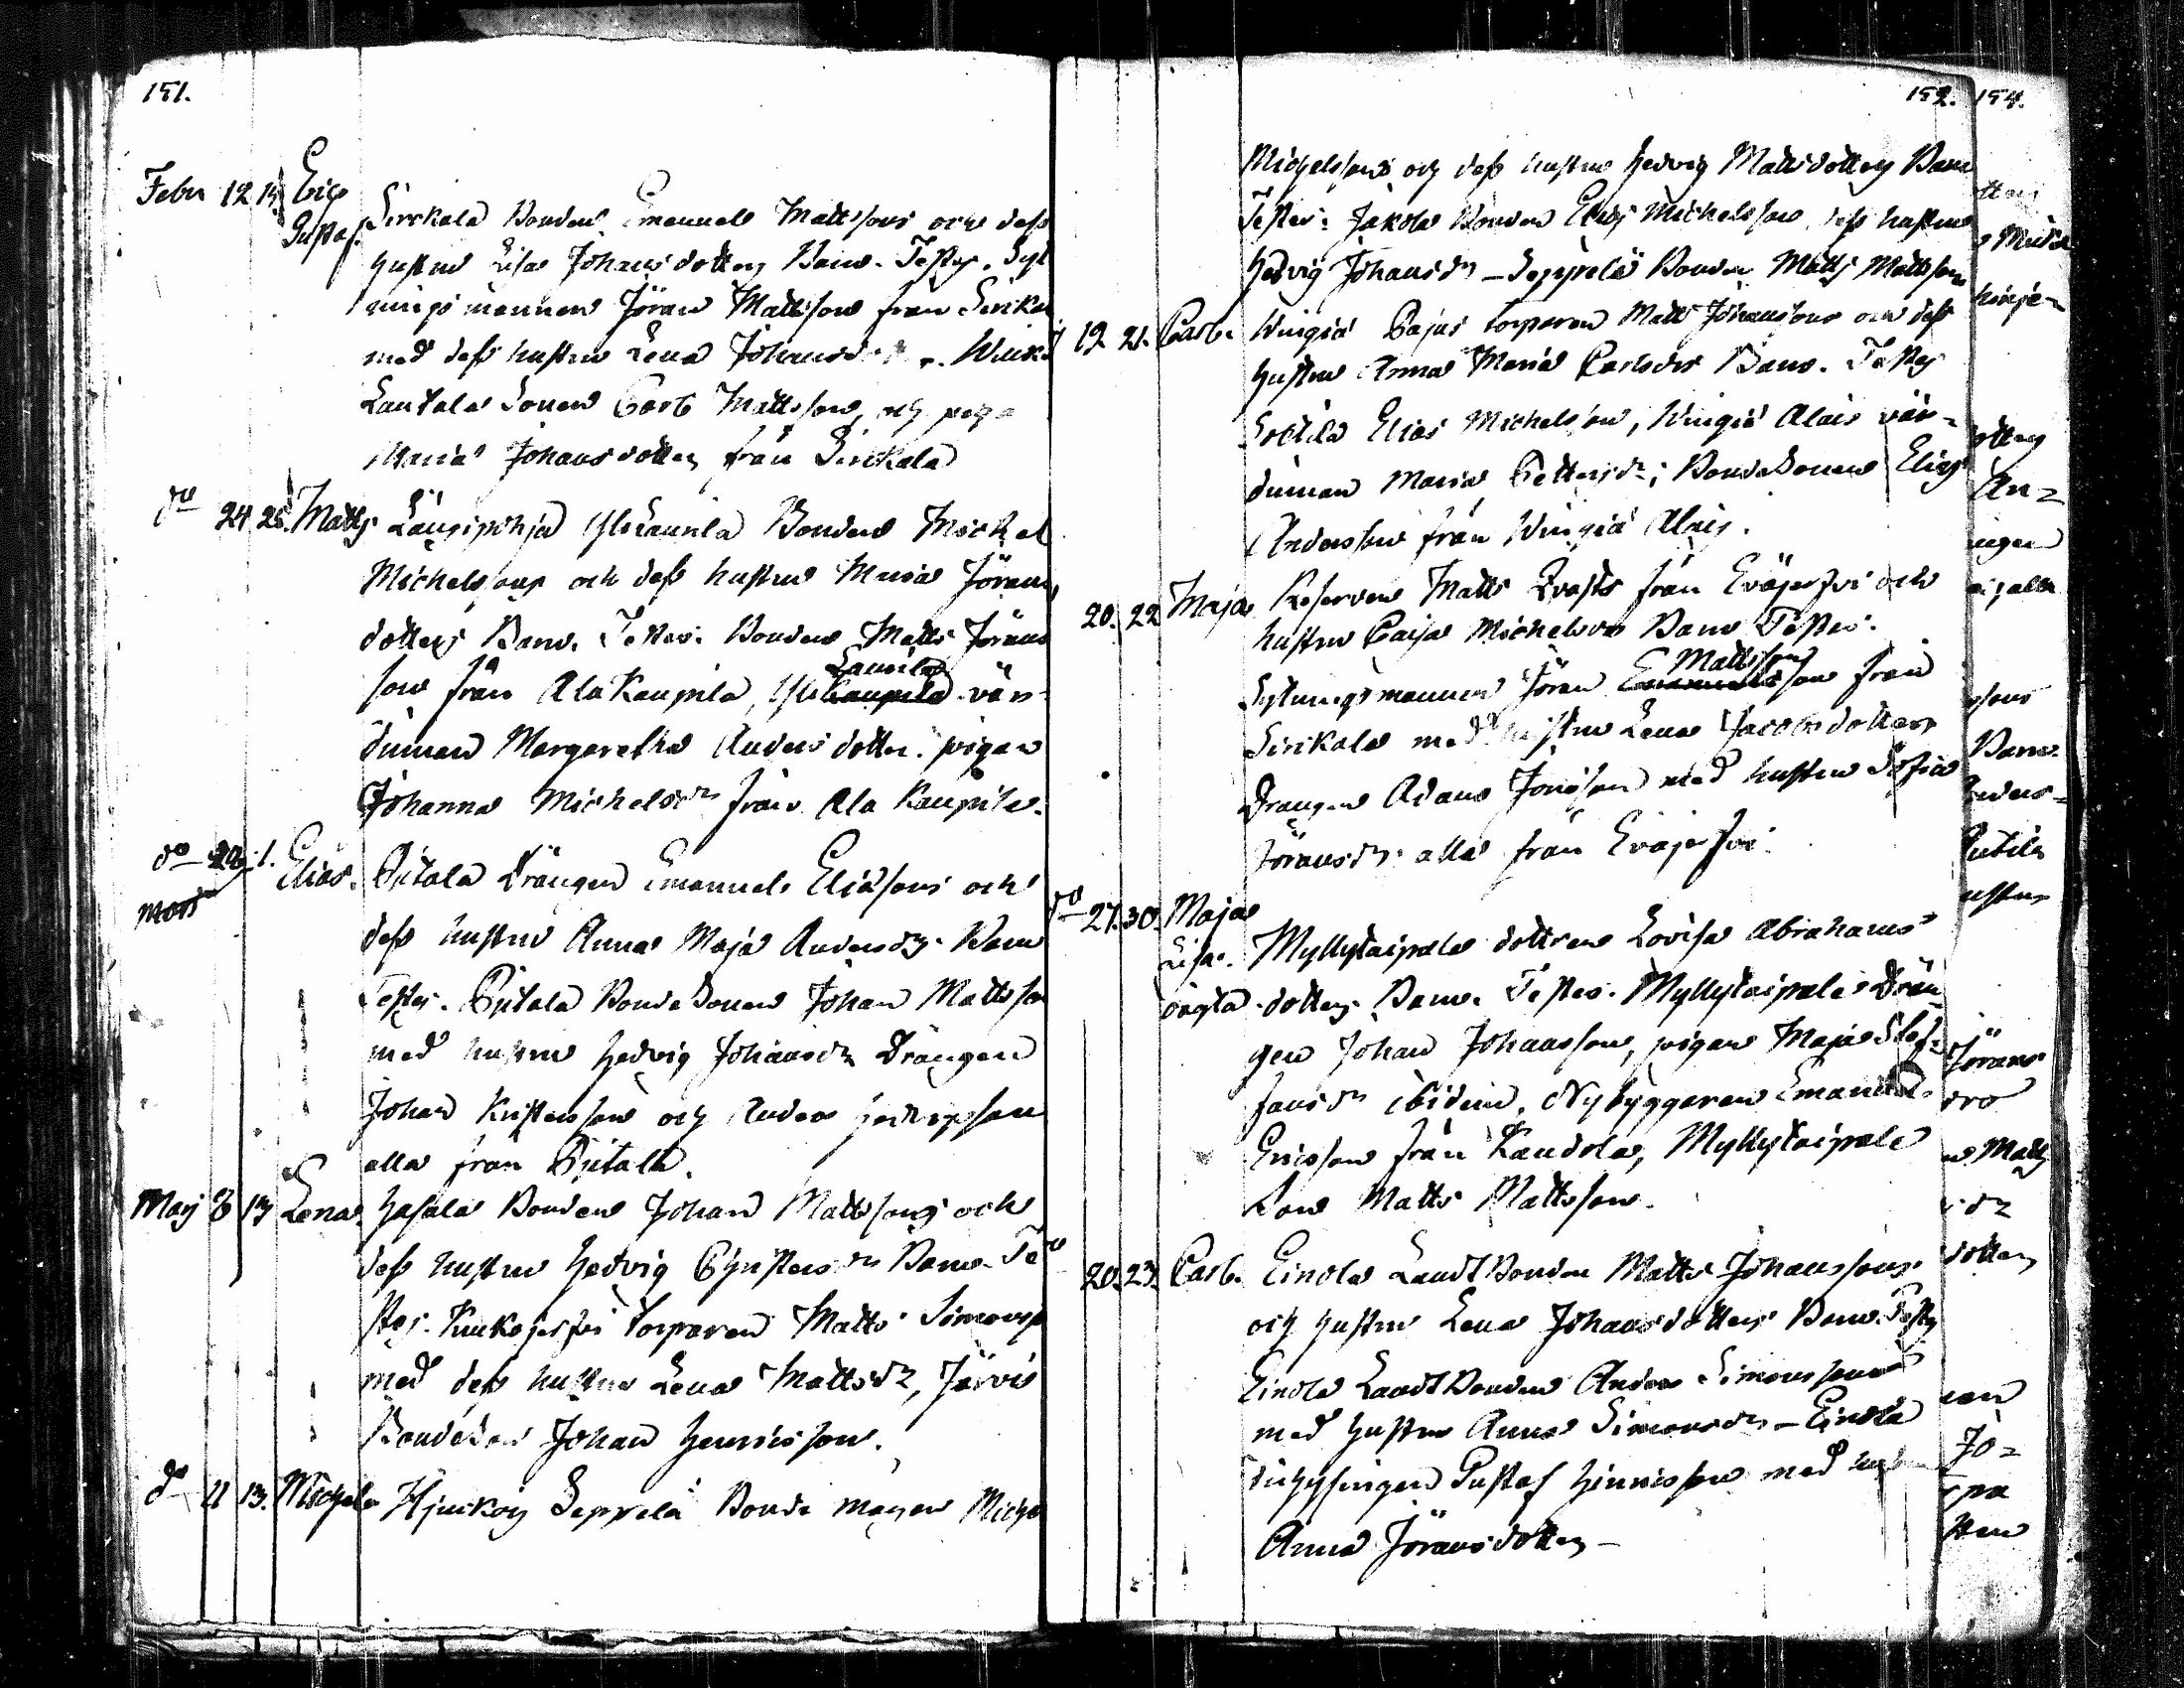 151.
Febr 12 14 Eric
Gustaf Sirckala Bonden Emanuel Mattssons och dess
hustrus Lisa Johansdotters Barn. Testes. Syt
nings mannen Jöran Mattsson från Sirkala
med dess hustru Lena Johansdr
Lautala Sonen Carl Mattsson, och piga
Maria Johansdotter från Sirckala
do 24 25. Matts Länsipohja Yli Launila Bonden Mickel
Michelssons och dess hustrus Maria Jörans
dotters Barn. Testes. Bonden Matts Jörans
son från Ala Kaupila, Yli Kaupila Launila vär-
dinnan Margaretha Anders dotter. pigan
Johanna Michelsdr från Ala Kaupila.
do 29 1. Elias. Pitala Drängen Emanuel Eliassons och
mars
dess hustrus Anna Maja Andersdrs Barn
Testes. Pitala Bonde Sonen Johan Mattsson
med hustru Hedvig Johansdr Drängen
Johan Kristersson och Anders
alla från Pitala.
Maj 8 13 Lena Hasala Bonden Johan Mattssons och
dess hustrus Hedvig Christersdrs Barn. Te
stes. Kuckojerfvi Torparen Matts Simonss
med dess hustru Lena Mattsdr, Järvis
Bondeson Johan Henricsson.
do 11 13. Michel Hjurkois Seppelä Bonde mågen Michel
152. 154.
Michelssons och dess hustrus Hedvig Mattsdotters Barn
Testes: Jakola Bonden Elias Michelsson, dess hustru
Hedvig Johansdr – Seppelä Bonden Matts Mattsson
19 21. Carl. Wingiä Pajus torparen Matts Johanssons och dess
hustrus Anna Maria Carlsdrs Barn. Testes
Sottila Elias Michelsson, Wingiä Alais vär-
dinnan Maria Pettersdr; BondeSonen Elias
Andersson från Wingiä Alais.
20. 22 Maja Reserven Matts Qvasts från Eväjerfvi och
hustrus Caisa Michelsdrs Barn Testes.
Sytningsmannen Jöran Emanuelsson Mattsson från
Sirikala med hustru Lena Jacobsdotter
Drängen Adam Jonsson med hustru Sofia
Jöransdr. alla från Eväjerfvi.
do 27. 30. Maja
Lisa. Myllytaipale dottren Lovisa Abrahams
oägta dotters Barn. Testes. Myllytaipale Drän
gen Johan Johansson, pigan Maja Stef-
fansdr ibidem. Nybyggaren Emanuel
Ericsson från Kandola, Myllytaipale
Son Matts Mattsson.
20. 23. Carl. Einola LandtBonden Matts Johanssons
och hustrus Lena Johansdotters Barn. Testes
Einola LandtBonden Anders Simonsson
med hustru Anna Simonsdr – Einola
Gustaf Hinricsson med
Anna Jöransdotter –